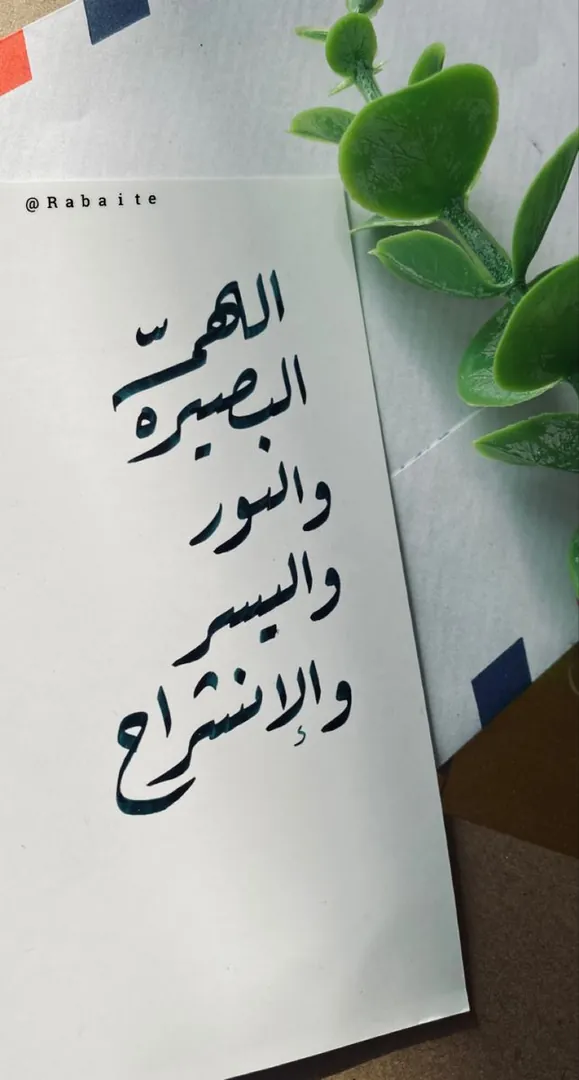 @Rabaite
اللهمّ
البصيره
والنور
واليسر
والإنشراح